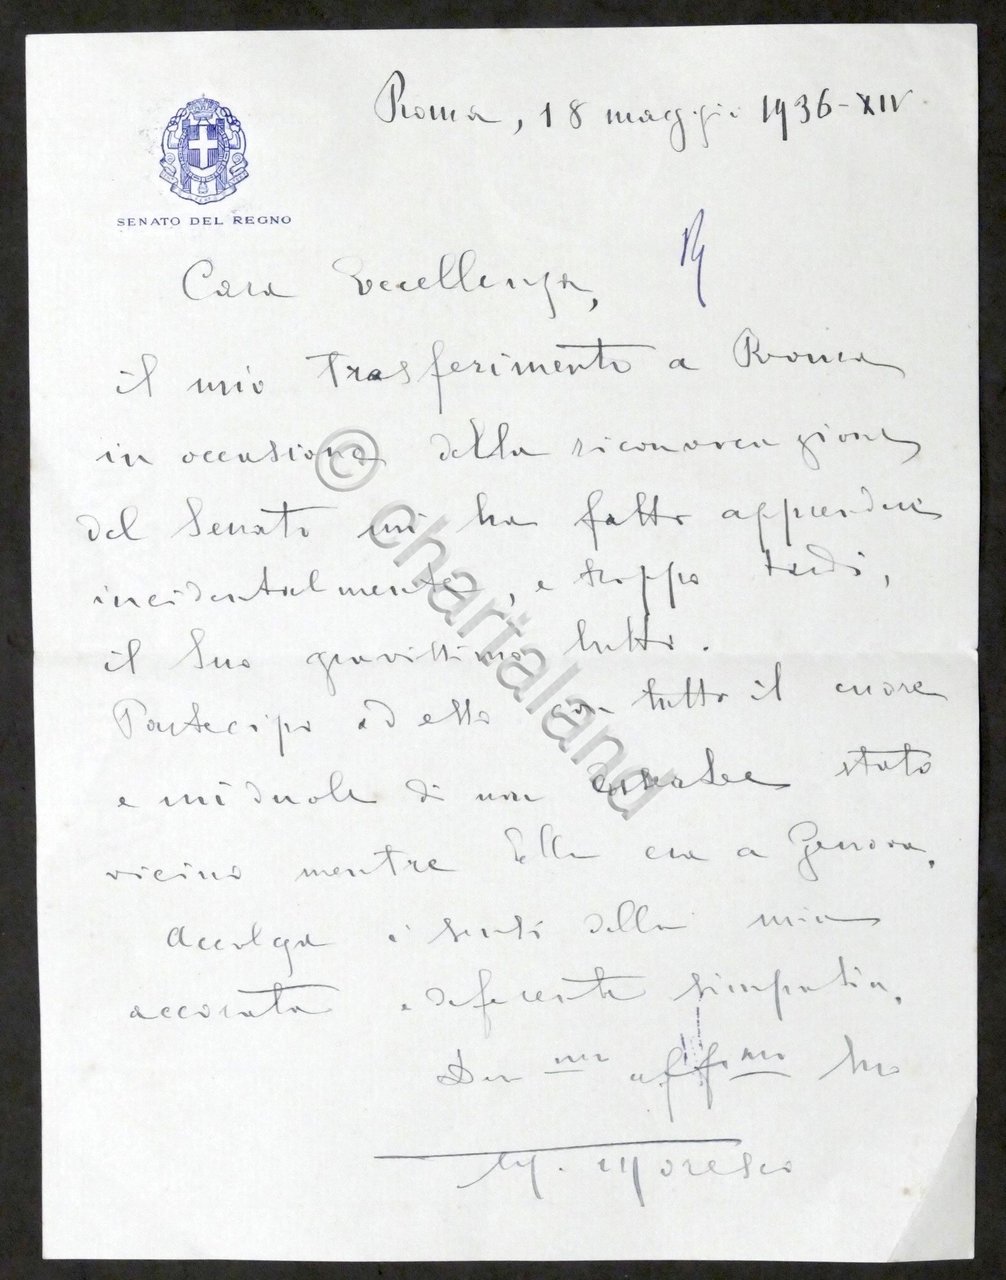 Roma, 18 maggio 1936-XIV
SENATO DEL REGNO
Cara Eccellenza,
il mio trasferimento a Roma
in occasione della riconvocazione
del Senato mi ha fatto apprendere
incidentalmente, e troppo tardi,
il Suo gravissimo lutto.
Partecipo ad esso con tutto il cuore
e mi duole di non esserLe stato
vicino mentre Ella era a Genova.
Accolga i sensi della mia
accorata e deferente simpatia.
Dev mo aff mo Suo
M. Moresco
© chartaland